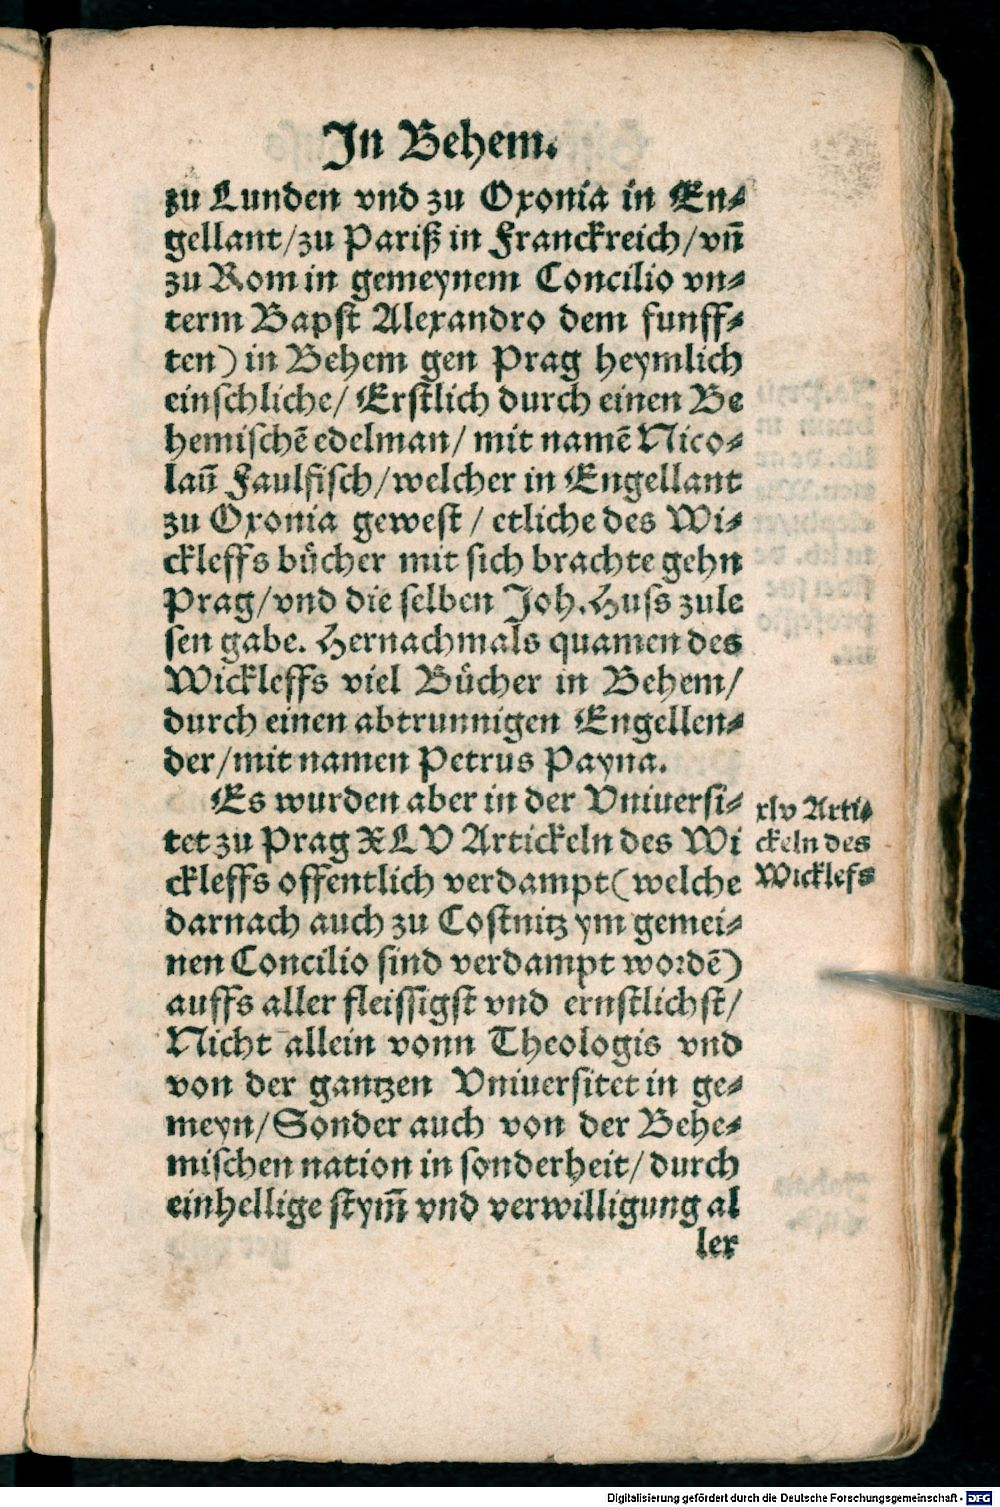 In Behem.
zu Lunden vnd zu Oxonia in En⸗
gellant/zu Pariß in Franckreich/vñ
zu Rom in gemeynem Concilio vn⸗
term Bapst Alexandro dem funff⸗
ten) in Behem gen Prag heymlich
einschliche/ Erstlich durch einen Be
hemischẽ edelman/ mit namẽ Nico⸗
laũ Faulfisch/welcher in Engellant
zu Oxonia gewest / etliche des Wi⸗
ckleffs bůcher mit sich brachte gehn
Prag/vnd die selben Joh. Huss zule
sen gabe. Hernachmals quamen des
Wickleffs viel Bůcher in Behem/
durch einen abtrunnigen Engellen⸗
der/mit namen Petrus Payna.
Es wurden aber in der Vniuersi⸗
tet zu Prag XLV Artickeln des Wi
ckleffs offentlich verdampt(welche
darnach auch zu Costnitz ym gemei⸗
nen Concilio sind verdampt wordẽ)
auffs aller fleissigst vnd ernstlichst/
Nicht allein vonn Theologis vnd
von der gantzen Vniuersitet in ge⸗
meyn/Sonder auch von der Behe⸗
mischen nation in sonderheit/durch
einhellige stym̃ vnd verwilligung al
ler
xlv Arti⸗
ckeln des
Wicklefs
Digitalisierung gefördert durch die Deutsche Forschungsgemeinschaft - DFG